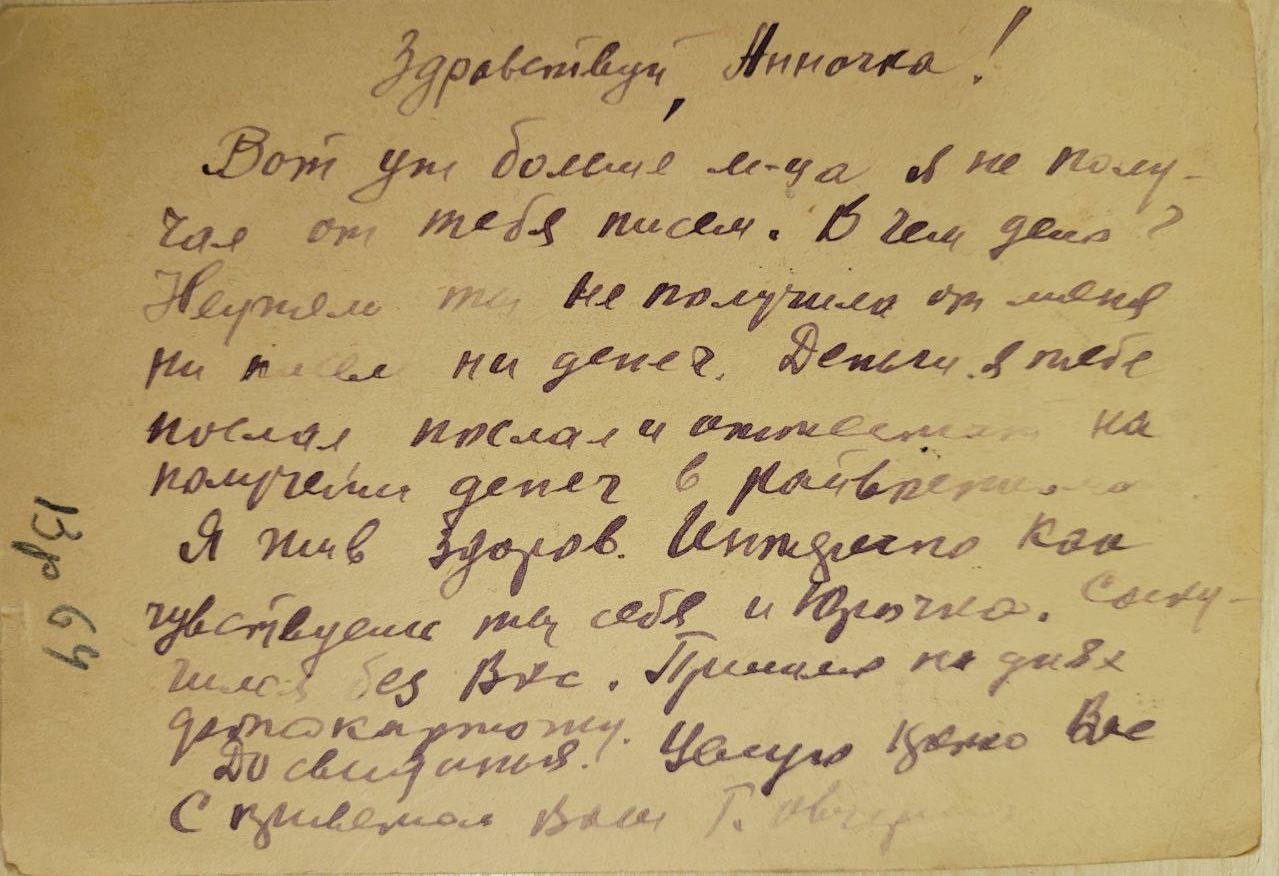 Здравствуй, Анночка!
Вот уж больше м-ца я не полу-
чаю от тебя писем. В чем дело?
Неужели ты не получила от меня
ни писем ни денег. Деньги я тебе
послал послал и аттестат на
получении денег в райвоенкома
Я жив здоров. Интересно как
чувствуешь ты себя и Юрочка. Соску-
чился без Вас. Пришлю на днях
фотокарточку.
До свиданья. Целую крепко Вас
С приветом Ваш Г.